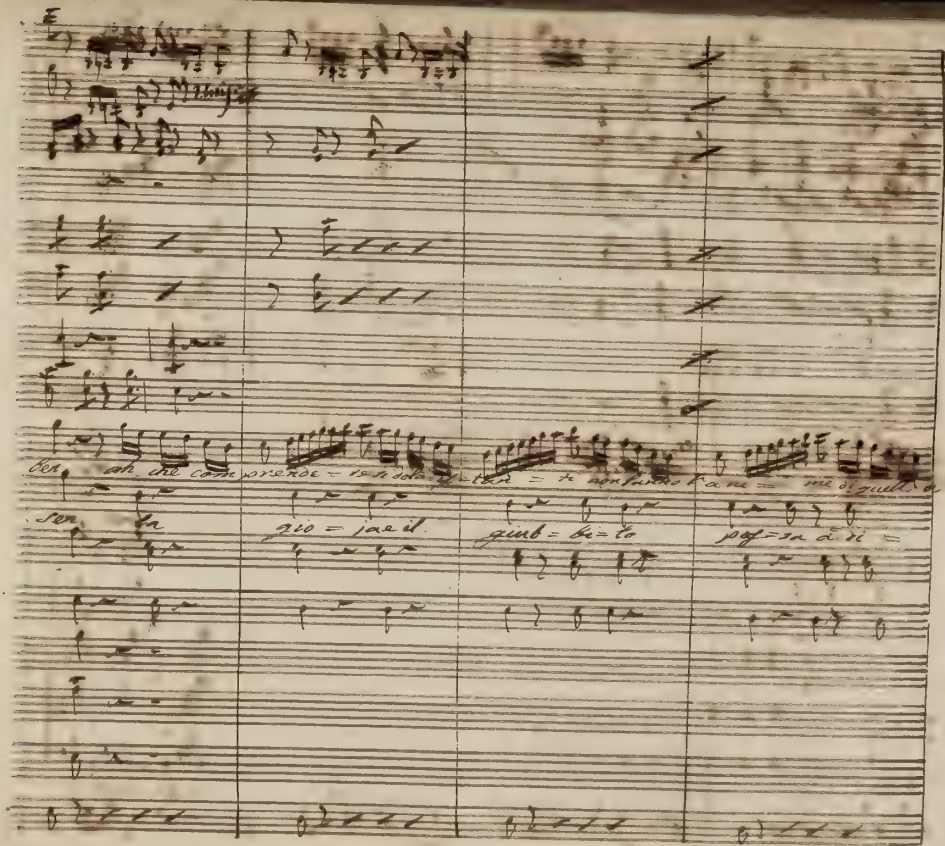 ber ah che comprende = rendola tan = ti non hanno l'ani = me di quell
ser la gio = jae il giub = bi = lo pos = sa à ri =